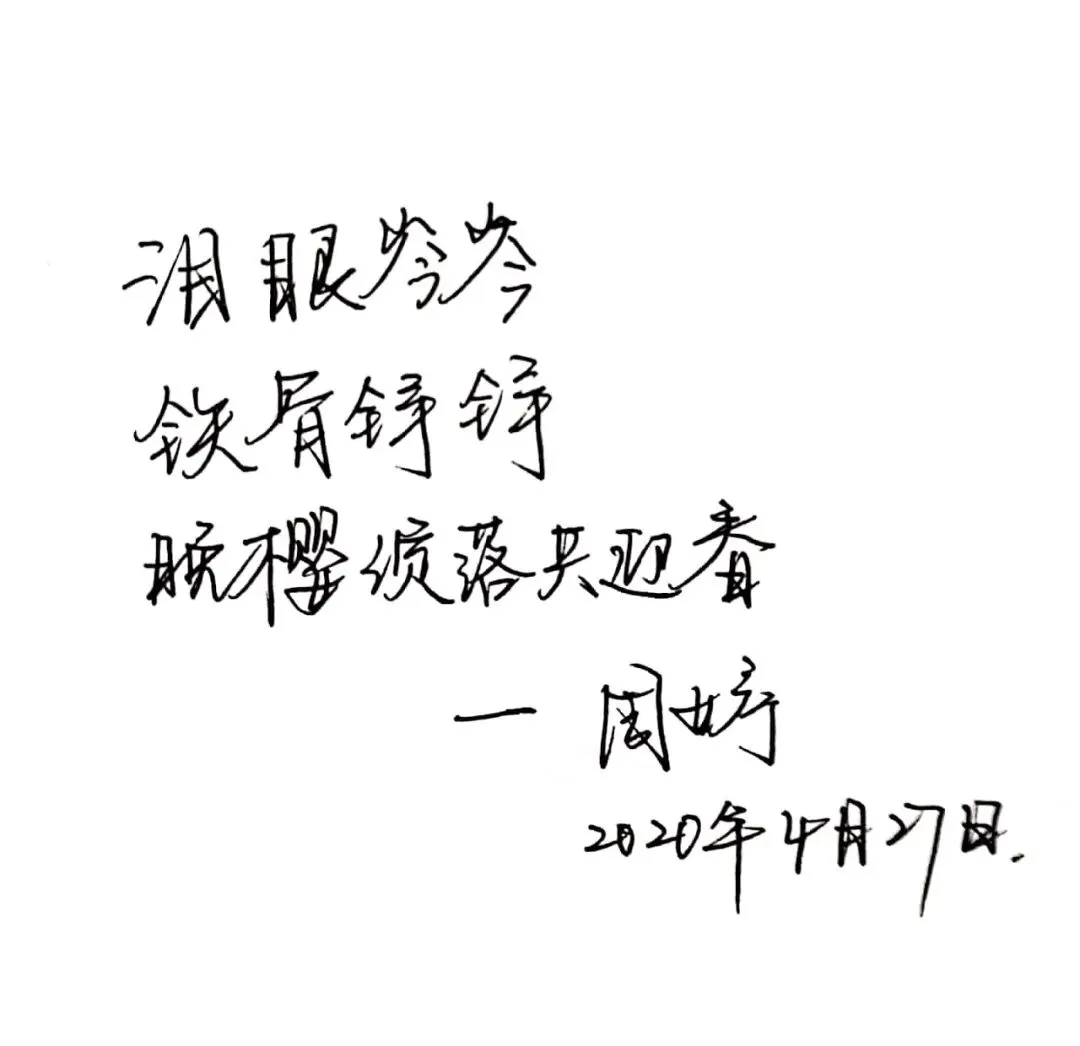 泪眼岑岑
铁骨铮铮
晚樱落共迎春
— 周婷
2020年4月27日.